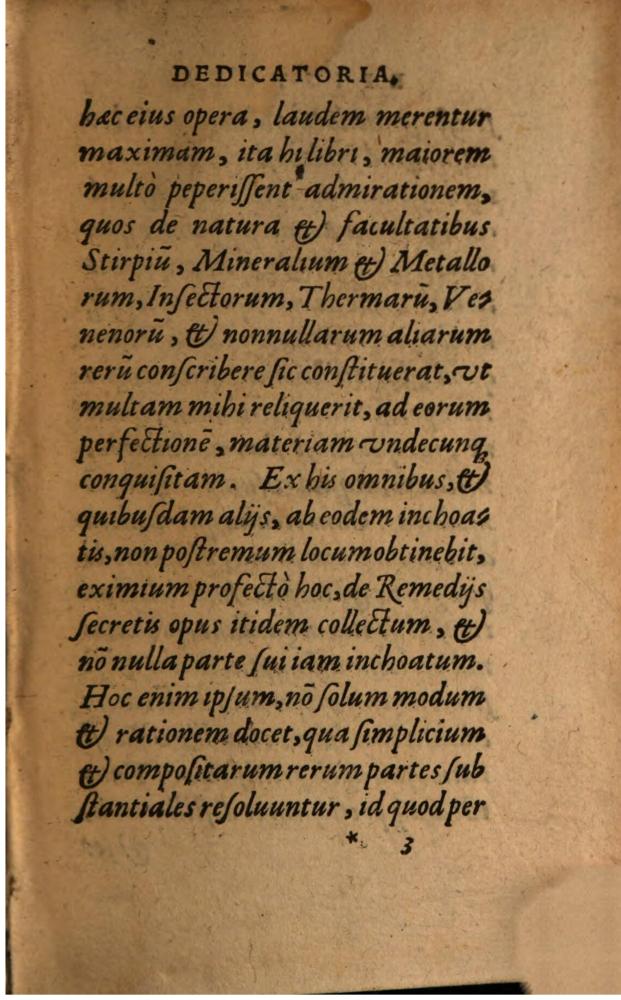 DEDICATORIA.
hæc eius opera, laudem merentur
maximam, ita hi libri, maiorem
multò peperiſſent admirationem,
quos de natura & facultatibus
Stirpiū, Mineralium & Metallo
rum, Inſectorum, Thermarū, Ve⸗
nenorū, & nonnullarum aliarum
rerū conſcribere ſic conſtituerat, vt
multam mihi reliquerit, ad eorum
perfectionē, materiam vndecunq;
conquiſitam. Ex his omnibus, &
quibuſdam alijs, ab eodem inchoa⸗
tis, non poſtremum locum obtinebit,
eximium profectò hoc, de Remedijs
ſecretis opus itidem collectum, &
nō nulla parte ſui iam inchoatum.
Hoc enim ipſum, nō ſolum modum
& rationem docet, qua ſimplicium
& compoſitarum rerum partes ſub
ſtantiales reſoluuntur, id quod per
* 3